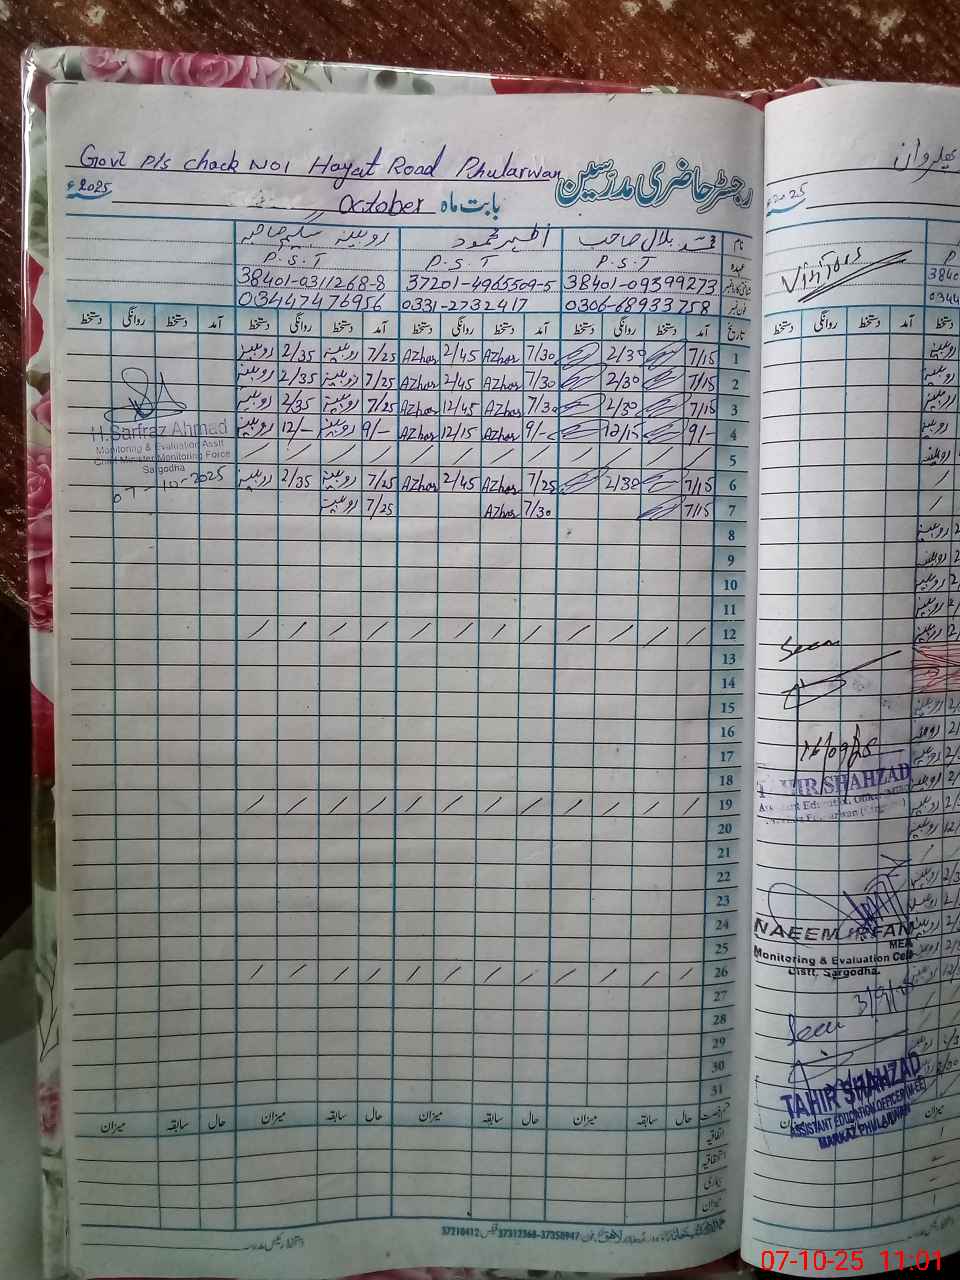 Govt P/s Chack No1 Hayat Road Phularwan
رجسٹر حاضری مدرسین
بابت ماہ October 2025ء
نام محمد بلال صاحب اظہر محمود روبینہ سلیم صاحبہ
عہدہ P.S.T P.S.T P.S.T
38401-09399273 37201-4965509-5 38401-0311268-8
فون نمبر 0306-68933758 0331-2732417 03447476956
تاریخ آمد دستخط روانگی دستخط آمد دستخط روانگی دستخط آمد دستخط روانگی دستخط آمد دستخط روانگی دستخط
1 7/15 2/30 7/30 Azhar 2/45 Azhar 7/25 روبینہ 2/35 روبینہ
2 7/15 2/30 7/30 Azhar 2/45 Azhar 7/25 روبینہ 2/35 روبینہ
3 7/15 2/30 7/30 Azhar 12/45 Azhar 7/25 روبینہ 2/35 روبینہ
4 9/- 12/15 9/- Azhar 12/15 Azhar 9/- روبینہ 12/- روبینہ
5 / / / / / / / / / / / /
6 7/15 2/30 7/25 Azhar 2/45 Azhar 7/25 روبینہ 2/35 روبینہ
7 7/15 7/30 Azhar 7/25 روبینہ
8
9
10
11
12 / / / / / / / / / / / /
13
14
15
16
17
18
19 / / / / / / / / / / / /
20
21
22
23
24
25
26 / / / / / / / / / / / /
27
28
29
30
31
حال سابقہ میزان حال سابقہ میزان حال سابقہ میزان حال سابقہ میزان
اتفاقیہ
استحقاقیہ
بیماری
میزان
37310412 37312368-37358947
H.Sarfraz Ahmad
Monitoring & Evaluation Asstt
Chief Minister Monitoring Force
Sargodha
07-10-2025
پھلروان
2025ء
Visitors
دستخط روانگی دستخط آمد
Seen
16/09/25
TAHIR SHAHZAD
NAEEM IRFAN
MEA
Monitoring & Evaluation Cell
Distt. Sargodha.
Seen 3/9/25
TAHIR SHAHZAD
ASSISTANT EDUCATION OFFICER (M-EE)
MARKAZ PHULARWAN
07-10-25 11:01